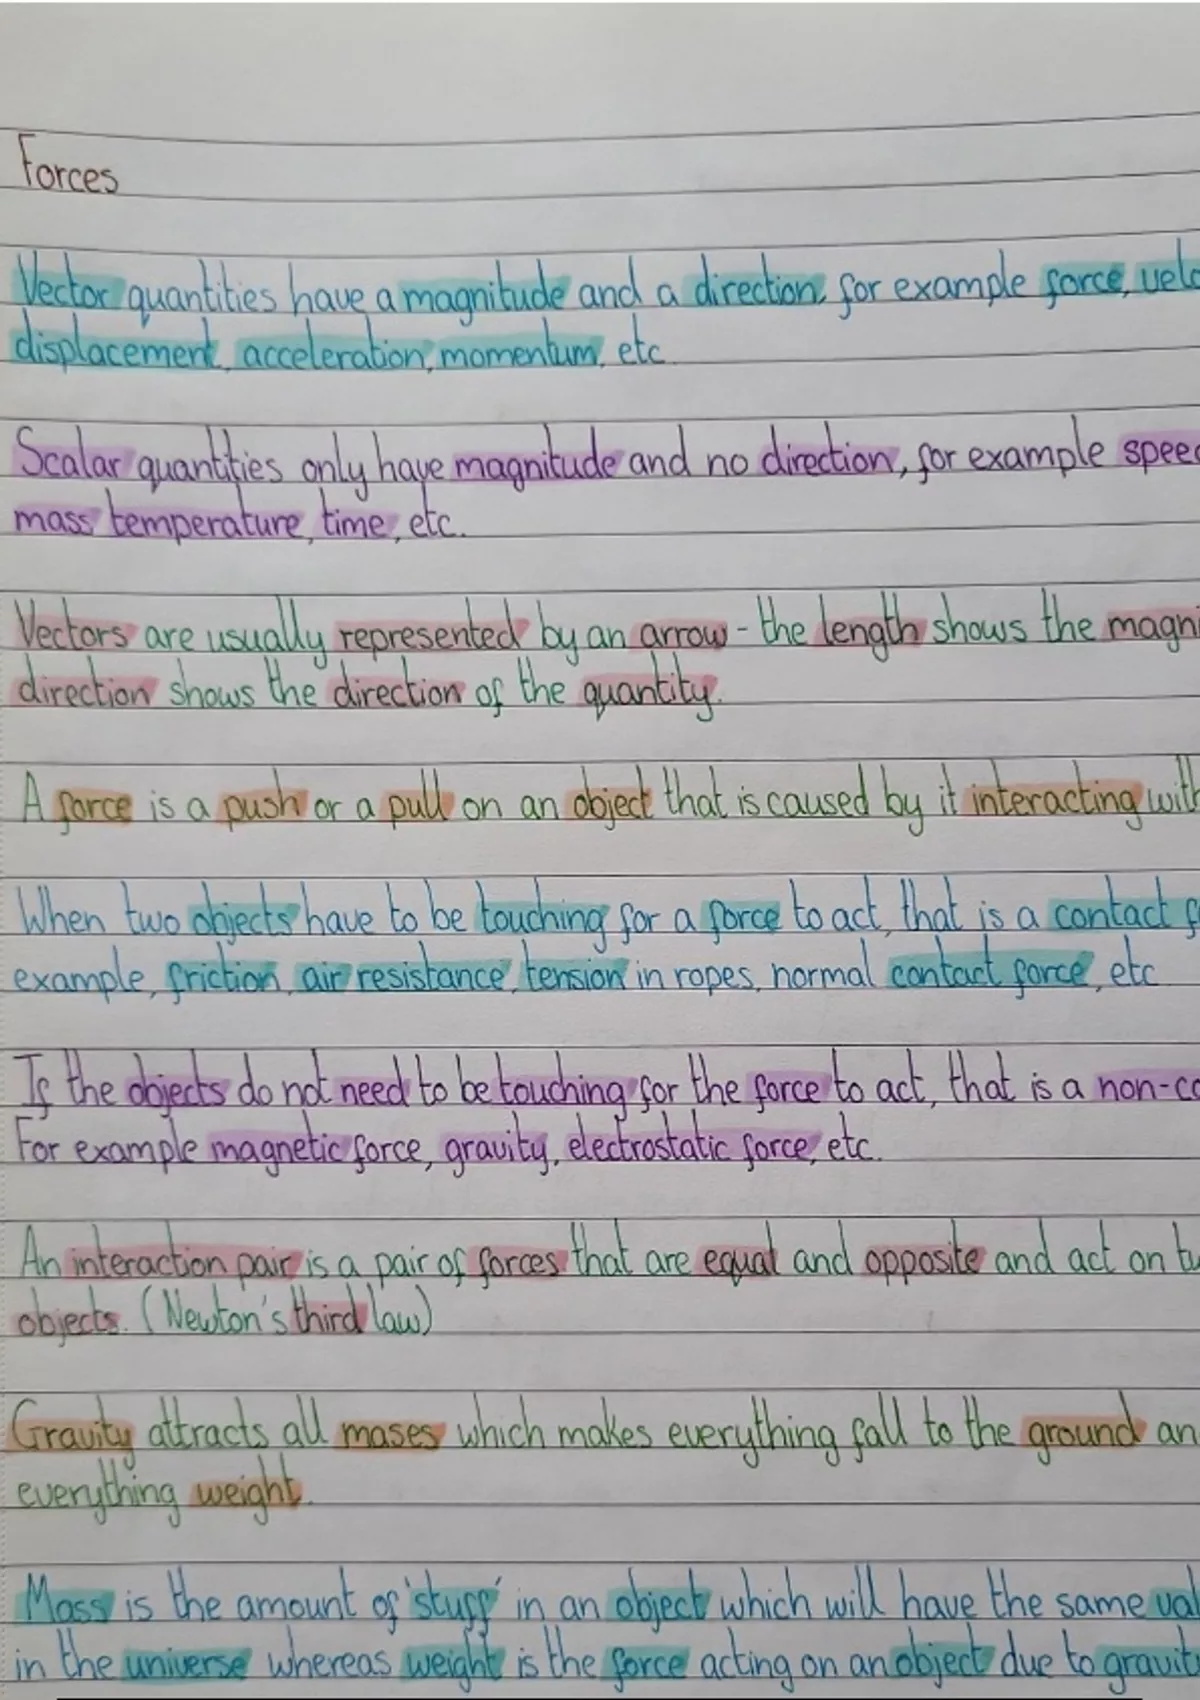 Forces
Vector quantities have a magnitude and a direction, for example force, velo
displacement, acceleration, momentum, etc
Scalar quantities only have magnitude and no direction, for example speed
mass temperature, time, etc.
Vectors are usually represented by an arrow - the length shows the magni
direction shows the direction of the quantity.
A force is a push or a pull on an object that is caused by it interacting with
When two objects have to be touching for a force to act, that is a contact f
example, friction, air resistance, tension in ropes, normal contact force, etc
If the objects do not need to be touching for the force to act, that is a non-co
For example magnetic force, gravity, electrostatic force, etc.
An interaction pair is a pair of forces that are equal and opposite and act on tw
objects. (Newton's third law)
Gravity attracts all mases which makes everything fall to the ground an
everything weight.
Mass is the amount of 'stuff' in an object which will have the same val
in the universe whereas weight is the force acting on an object due to gravity